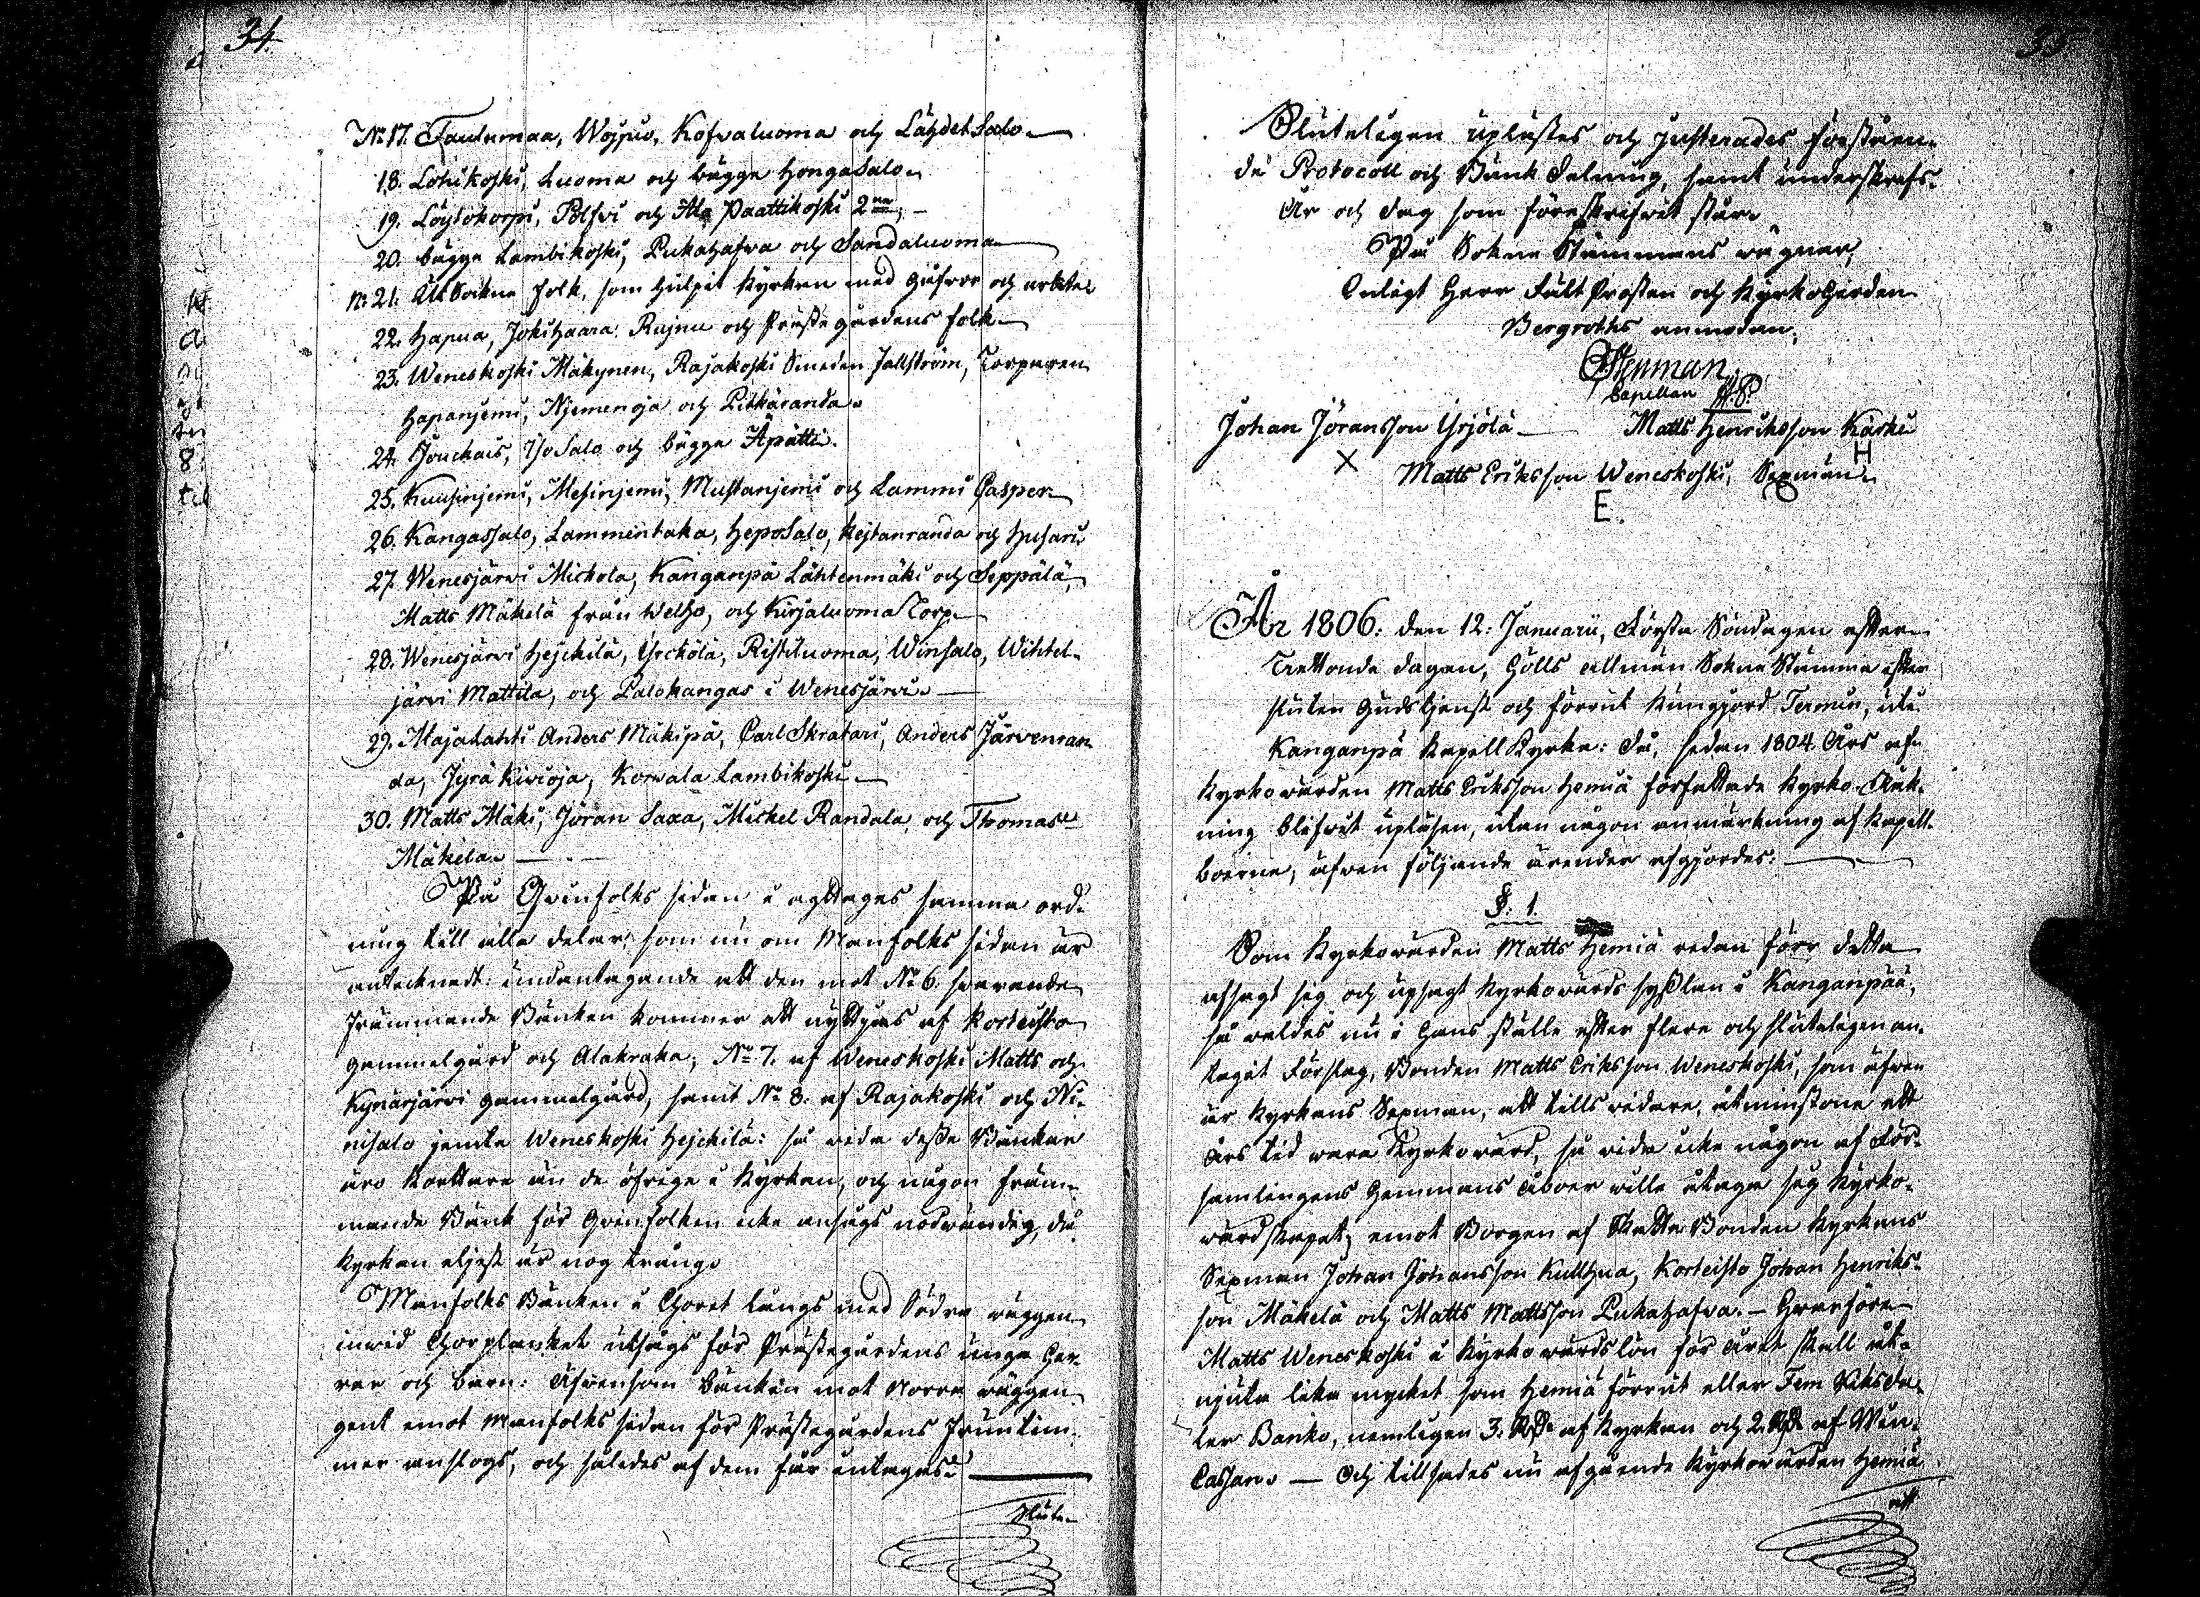 34.
No 17. Taulumaa, Wojpio, Kofvaluoma och Lähdet Salo
18. Lohikoski, Luoma och begge Honga Salo
19. Löytokorpi, Pölfvi och Ala Paattikoski 2ne
20. begge Lambikoski, Pukahafva och Sandaluoma
No 21. Utsokne folk, som hulpit Kyrkan med gåfvor och arbete
22. Hapua, Jokihaara, Rujnu och Prästegårdens folk
23. Weneskoski Mäkynen, Rajakoski Smeden Fallström, Torparen
Hapanjemi, Njemenoja och Pitkäranda
24. Jouckais, Iso Salo och begge Apätti.
25. Kuusinjemi, Mesinjemi, Mustanjemi och Lammi Casper
26. Kangassalo, Lammintaka, Heposalo, Kejtanranda och Husari
27. Wenesjärvi Mickola, Kanganpä Lähtenmäki och Seppälä,
Matts Mäkelä från Welho, och Kirjaluoma Torp
28. Wenesjärvi Hejckilä, Yrckölä, Ristiluoma, Winsalo, Wihtel-
järvi Mattila, och Palokangas i Wenesjärvi.
29. Majalahti Anders Mäkipä, Carl Skratari, Anders Järvenran
da, Jyrä Kivioja, Korvala Lambikoski
30. Matts Mäki, Jöran Saxa, Michel Randala, och Thomas
Mäkelä
På Qvinfolks sidan i agttages samma ord-
ning till alla delar, som nu om Manfolks sidan är
antecknadt: undantagande att den mot No 6. svarande
främmande Bänken kommer att nyttjas af Korteisto
gammelgård och Alakraka, No 7. af Weneskoski Matts och
Kynärjärvi gammelgård, samt No 8. af Rajakoski och Ni-
nisalo jemte Weneskoski Hejckilä: så vida desse Bänkar
äro kortare än de öfrige i Kyrkan, och någon främ-
mande Bänk för Qvinfolken icke ansågs nödvändig, då
Kyrkan eljest är nog trång.
Manfolks Bänken i Choret längs med Södra väggen
invid Chorplanket utsågs för Prästegårdens unga Her-
rar och barn: Äfvensom bänken mot Norra väggen
gent emot Manfolks sidan för Prästegårdens Fruntim-
mer anslogs, och således af dem får intagas.
Slute-
35.
Sluteligen uplästes och justerades förståen-
de Protocoll och Bänk Delning, samt underskrefs
År och dag som föreskrifvit står.
På Sokne Stämmans vägnar,
Enligt Herr Fält Prosten och KyrkoHerden
Bergroths anmodan,
Stenman.
Capellan
Johan Jöransson Yrjölä
Matts Henriksson Karhu
X
H
Matts Eriksson Weneskoski, Sexman
E.
År 1806. den 12. Januarii, Första Söndagen efter
Trettonde dagen, hölls allmän Sokne Stämma efter
sluten Gudstjenst och förrut kungjord Termin, uti
Kanganpä Kapell Kyrka: då, sedan 1804 Års af
Kyrkovärden Matts Eriksson Hemiä författade Kyrko-Räk-
ning blifvit upläsen, utan någon anmärkning af Kapell-
boerne, äfven följande ärender afgjordes:
§. 1.
Som Kyrkovärden Matts Hemiä redan förr detta
afsagt sig och upsagt Kyrkovärds sysslan i Kanganpää,
så valdes nu i hans ställe efter flere och sluteligen an-
tagit Förslag, Bonden Matts Eriksson Weneskoski, som äfven
är Kyrkans Sexman, att tills vidare, åtminstone ett
Års tid vara Kyrkovärd, så vida icke någon af För-
samlingens Hemmans Åboer ville åtaga sig Kyrko-
värdskapet; emot Borgen af Skatte Bonden Kyrkans
Sexman Johan Johansson Kullhua, Korteisto Johan Henriks-
son Mäkelä och Matts Mattsson Pukahafva. — Hvarföre
Matts Weneskoski i Kyrkovärds lön för året skall åt-
njuta lika mycket som Hemiä förrut eller Fem Riksda-
ler Banko, nemligen 3. Rd af Kyrkan och 2. Rd af Win-
Cassan. — Och tillsades nu afgående Kyrkovärden Hemiä
att